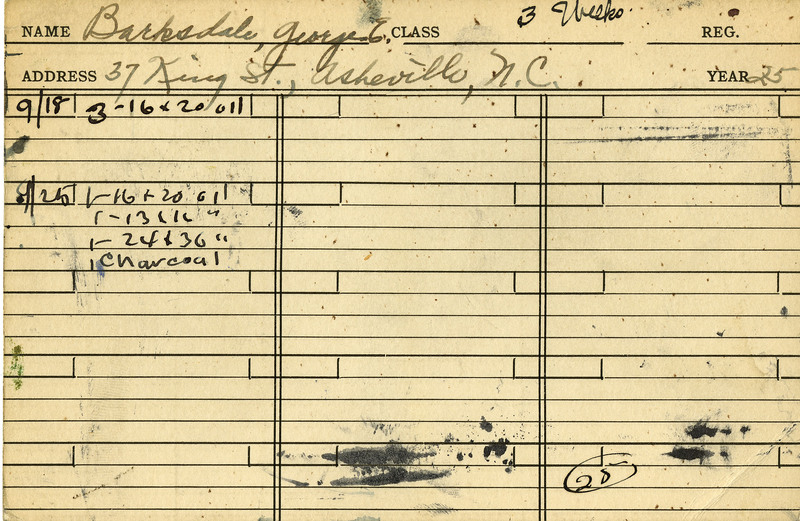 3 Weeks.
NAME Barksdale, George E. CLASS REG.
ADDRESS 37 King St., Asheville, N.C. YEAR 25
9/18 3-16 x 20 oil
8/25 1-16 x 20 oil
1-13 x 16 "
1-24 x 36 "
1 Charcoal
25